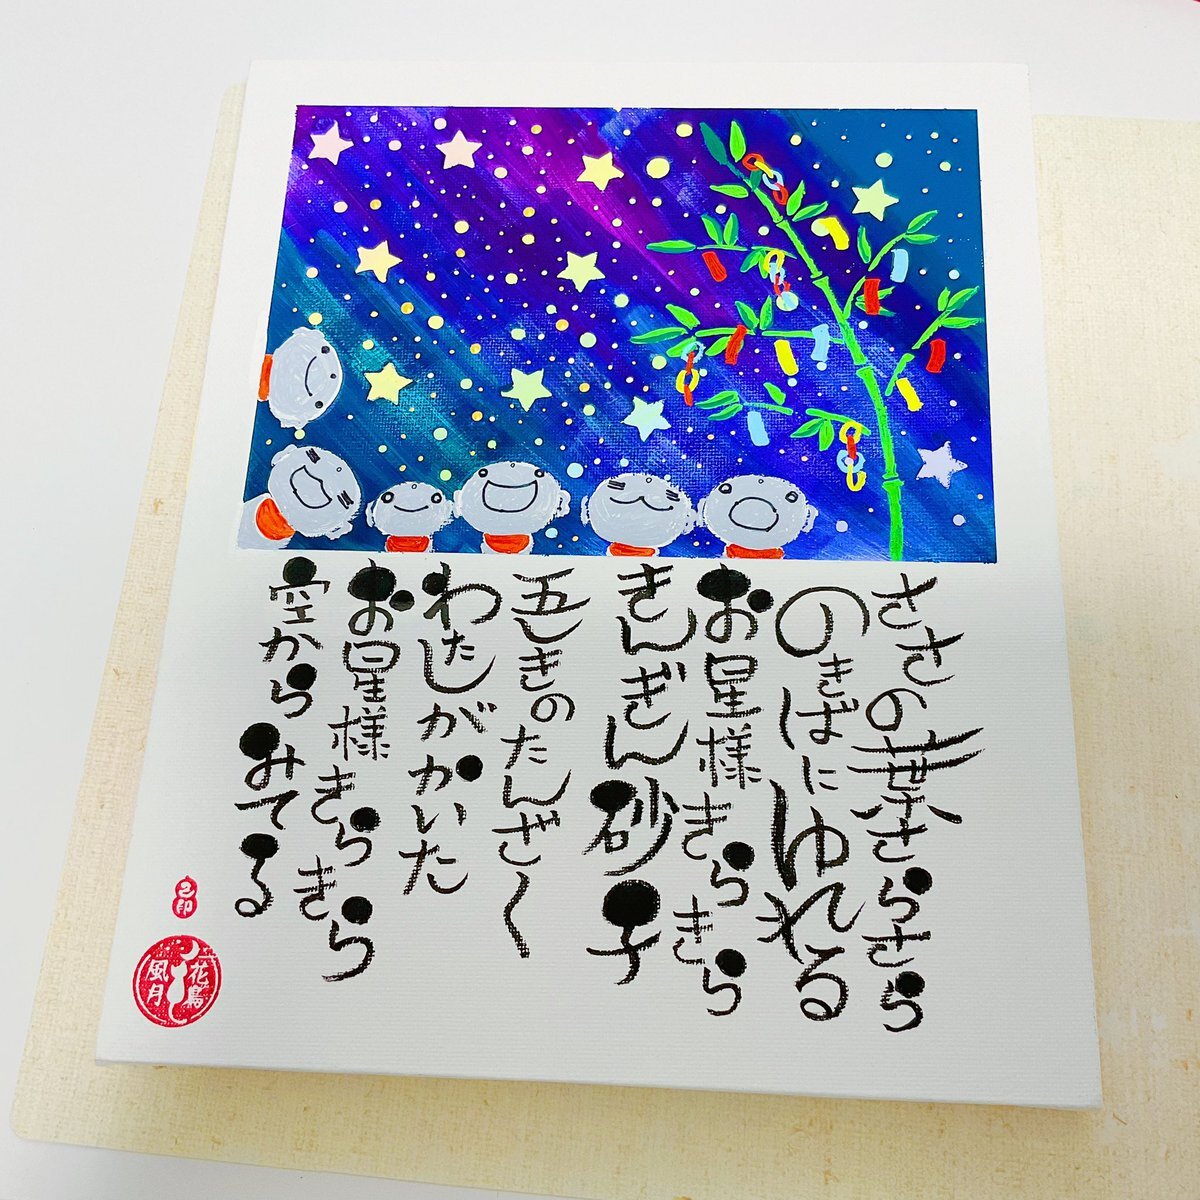 ささの葉さらさら
のきばにゆれる
お星様きらきら
きんぎん砂子
五しきのたんざく
わたしがかいた
お星様きらきら
空からみてる
花鳥
風月